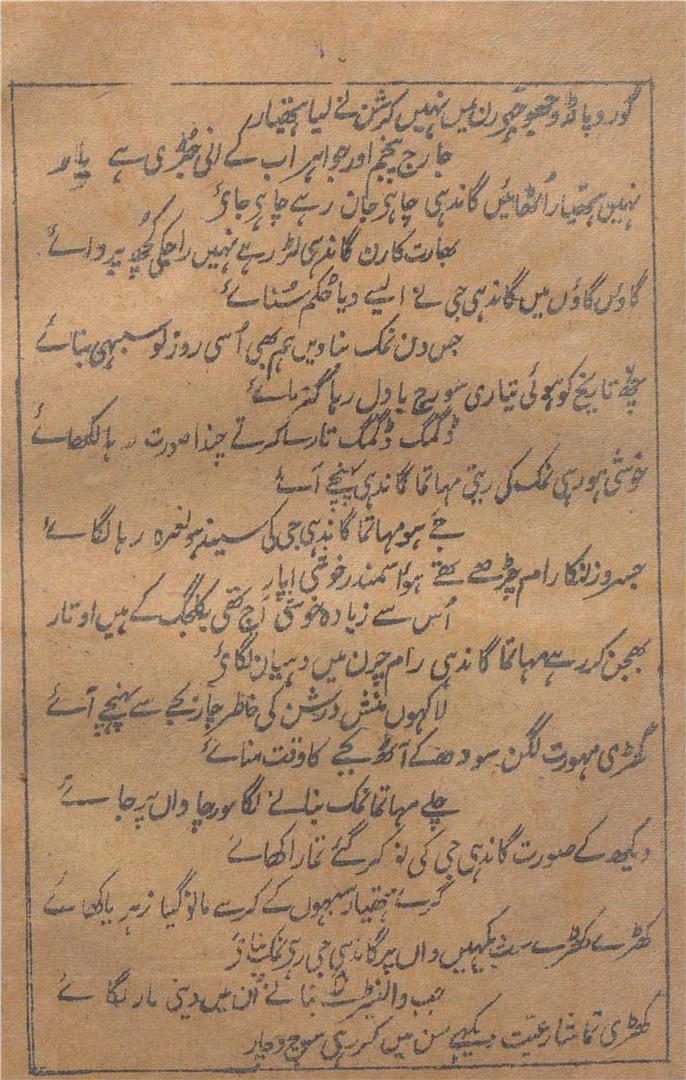 کورو پانڈو جھوجھے رن میں نہیں کرشن نے لیا ہتھیار
جارج پنجم اور جواہر اب کے انی جڑی ہے یار
نہیں ہتھیار اُٹھائیں گاندہی چاہے جان رہے چاہے جائے
بھارت کارن گاندہی لڑ رہے نہیں راج کی کچھ پروائے
گاؤں گاؤں میں گاندہی جی نے ایسے دیا حکم سُنائے
جس دن نمک بناویں ہم بھی اُسی روز لو سبھی بنائے
چھ تاریخ کو ہوئی تیاری سورج بادل رہا گرمائے
ڈگمگ ڈگمگ تارے کرتے چندا صورت رہا لکھائے
خوشی ہو رہی نمک کی ریتی مہاتما گاندہی پہنچے آئے
جے ہو مہاتما گاندہی جی کی سیندہو نعرہ رہا لگائے
جس روز لنکا رام چڑھے تھے ہوا سمندر خوشی اپار
اُس سے زیادہ خوشی آج تھی یہ کلجگ کے ہیں اوتار
بھجن کر رہے مہاتما گاندہی رام چرن میں دہیان لگائے
لاکہوں منش درشن کی خاطر چار بجے سے پہنچے آئے
گھڑی مہورت لگن سودھ کے آٹھ بجے کا وقت منائے
چلے مہاتما نمک بنانے لگا مورچا واں پر جائے
دیکھ کے صورت گاندہی جی کی نوکر گئے تمارا کھائے
گرے ہتھیار سبہوں کے کر سے مانو گیا زہر یا کھائے
کھڑے کھڑے سب دیکہیں واں پر گاندہی جی رہے نمک بنائے
جب والنیٹر بنانے اُن میں دینی مار لگائے
کھڑی تماشا رعیت دیکہے من میں کر رہی سوچ وچار